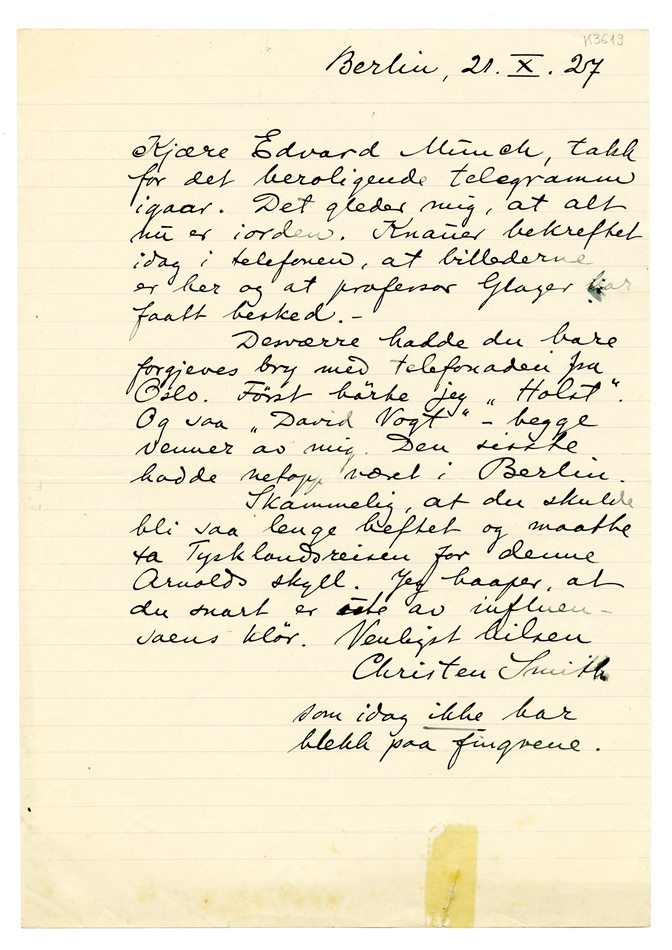 K3619
Berlin, 21. X. 27
Kjære Edvard Münch, takk
for det beroligende telegramm
igaar. Det gleder mig, at alt
nu er iorden. Knauer bekreftet
idag i telefonen, at billederne
er her og at professor Glaser har
faatt besked. –
Desværre hadde du bare
forgjeves bry med telefonaden fra
Oslo. Först hörte jeg „Holst“.
Og saa „David Vogt“ – begge
venner av mig. Den sisste
hadde netopp været i Berlin.
Skammelig, at du skulde
bli saa lenge heftet og maatte
ta Tysklandsreisen for denne
Arnolds skyll. Jeg haaper, at
du snart er ute av influen-
saens klör. Venligst hilsen
Christen Smith
som idag ikke har
blekk paa fingrene.